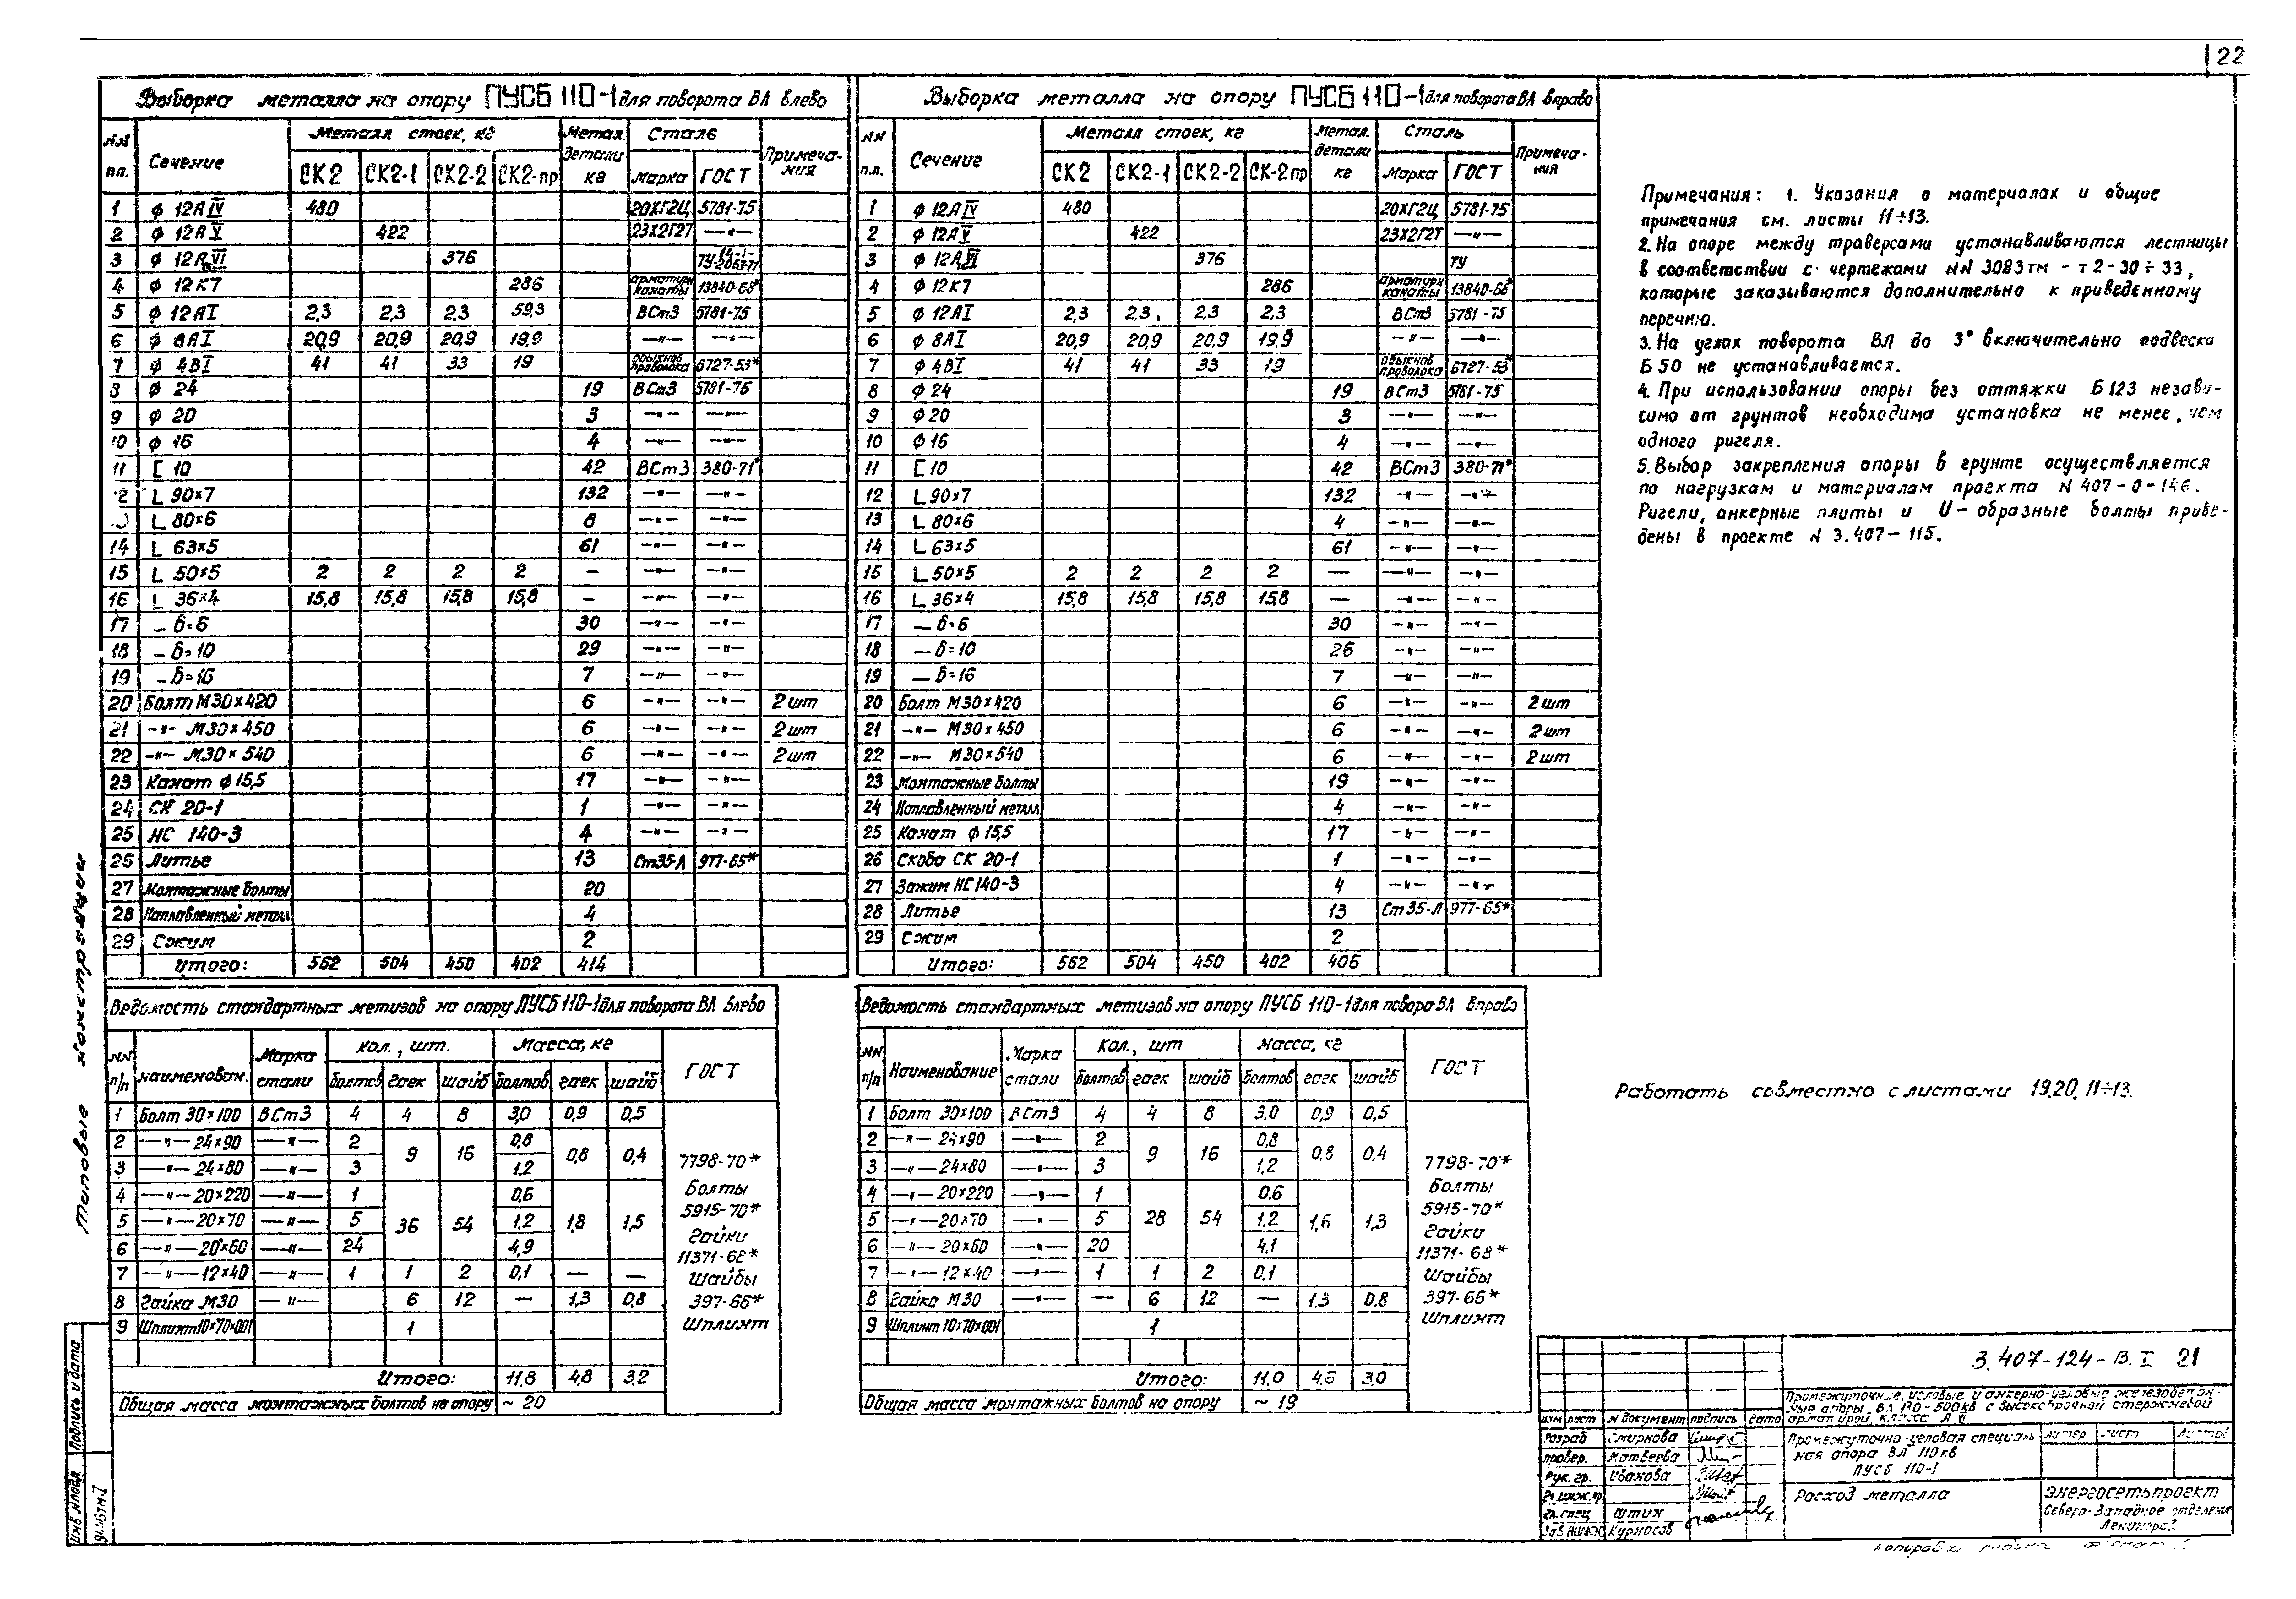 22
Выборка металла на опору ПУСБ 110-1 для поворота ВЛ влево
NN п.п. Сечение Металл стоек, кг Метал. детали кг Сталь Примечания
СК2 СК2-1 СК2-2 СК2-пр Марка ГОСТ
1 ϕ 12АIV 480 20ХГ2Ц 5781-75
2 ϕ 12АV 422 23Х2Г2Т —"—
3 ϕ 12АVI 376
4 ϕ 12К7 286 арматурн канаты 13840-68*
5 ϕ 12АI 2,3 2,3 2,3 59,3 ВСт3 5781-75
6 ϕ 8АI 20,9 20,9 20,9 19,9 —"— —"—
7 ϕ 4ВI 41 41 33 19 обыкнов проволока 6727-53*
8 ϕ 24 19 ВСт3 5781-75
9 ϕ 20 3 —"— —"—
10 ϕ 16 4 —"— —"—
11 [ 10 42 ВСт3 380-71*
12 L 90×7 132 —"— —"—
13 L 80×6 8 —"— —"—
14 L 63×5 61 —"— —"—
15 L 50×5 2 2 2 2 — —"— —"—
16 L 36×4 15,8 15,8 15,8 15,8 — —"— —"—
17 — б=6 30 —"— —"—
18 — б=10 29 —"— —"—
19 — б=16 7 —"— —"—
20 Болт М30×420 6 —"— —"— 2 шт
21 —"— М30×450 6 —"— —"— 2 шт
22 —"— М30×540 6 —"— —"— 2 шт
23 Канат ϕ 15,5 17 —"— —"—
24 СК 20-1 1 —"— —"—
25 НС 140-3 4 —"— —"—
26 Литье 13 Ст35-Л 977-65*
27 Монтажные болты 20
28 Наплавленный металл 4
29 Сжим 2
Итого: 562 504 450 402 414
Выборка металла на опору ПУСБ 110-1 для поворота ВЛ вправо
NN п.п. Сечение Металл стоек, кг Метал. детали кг Сталь Примечания
СК2 СК2-1 СК2-2 СК-2пр Марка ГОСТ
1 ϕ 12АIV 480 20ХГ2Ц 5781-75
2 ϕ 12АV 422 23Х2Г2Т —"—
3 ϕ 12АVI 376 ТУ
4 ϕ 12К7 286 арматурн канаты 13840-68*
5 ϕ 12АI 2,3 2,3 2,3 2,3 ВСт3 5781-75
6 ϕ 8АI 20,9 20,9 20,9 19,9 —"— —"—
7 ϕ 4ВI 41 41 33 19 обыкнов проволока 6727-53*
8 ϕ 24 19 ВСт3 5781-75
9 ϕ 20 3 —"— —"—
10 ϕ 16 4 —"— —"—
11 [ 10 42 ВСт3 380-71*
12 L 90×7 132 —"— —"—
13 L 80×6 4 —"— —"—
14 L 63×5 61 —"— —"—
15 L 50×5 2 2 2 2 — —"— —"—
16 L 36×4 15,8 15,8 15,8 15,8 — —"— —"—
17 — б=6 30 —"— —"—
18 — б=10 26 —"— —"—
19 — б=16 7 —"— —"—
20 Болт М30×420 6 —"— —"— 2 шт
21 —"— М30×450 6 —"— —"— 2 шт
22 —"— М30×540 6 —"— —"— 2 шт
23 Монтажные болты 19 —"— —"—
24 Наплавленный металл 4 —"— —"—
25 Канат ϕ 15,5 17 —"— —"—
26 Скоба СК 20-1 1 —"— —"—
27 Зажим НС 140-3 4 —"— —"—
28 Литье 13 Ст35-Л 977-65*
29 Сжим 2
Итого: 562 504 450 402 406
Примечания: 1. Указания о материалах и общие
примечания см. листы 11÷13.
2. На опоре между траверсами устанавливаются лестницы
в соответствии с чертежами NN 3083тм - т2-30÷33,
которые заказываются дополнительно к приведенному
перечню.
3. На углах поворота ВЛ до 3° включительно подвеска
Б50 не устанавливается.
4. При использовании опоры без оттяжки Б123 незави-
симо от грунтов необходима установка не менее, чем
одного ригеля.
5. Выбор закрепления опоры в грунте осуществляется
по нагрузкам и материалам проекта N 407-0-146.
Ригели, анкерные плиты и U-образные болты приве-
дены в проекте N 3.407-115.
Ведомость стандартных метизов на опору ПУСБ 110-1 для поворота ВЛ влево
NN п/п наименован. Марка стали кол., шт. Масса, кг ГОСТ
болтов гаек шайб болтов гаек шайб
1 Болт 30×100 ВСт3 4 4 8 3,0 0,9 0,5
2 —"— 24×90 —"— 2 9 16 0,8 0,8 0,4
3 —"— 24×80 —"— 3 1,2
4 —"— 20×220 —"— 1 36 54 0,6 1,8 1,5
5 —"— 20×70 —"— 5 1,2
6 —"— 20×60 —"— 24 4,9
7 —"— 12×40 —"— 1 1 2 0,1 — —
8 Гайка М30 —"— 6 12 — 1,3 0,8
9 Шплинт 10×70×001 1
7798-70*
Болты
5915-70*
Гайки
11371-68*
Шайбы
397-66*
Шплинт
Итого: 11,8 4,8 3,2
Общая масса монтажных болтов на опору ~ 20
Ведомость стандартных метизов на опору ПУСБ 110-1 для поворота ВЛ вправо
NN п/п Наименование Марка стали Кол., шт Масса, кг ГОСТ
болтов гаек шайб болтов гаек шайб
1 Болт 30×100 ВСт3 4 4 8 3,0 0,9 0,5
2 —"— 24×90 —"— 2 9 16 0,8 0,8 0,4
3 —"— 24×80 —"— 3 1,2
4 —"— 20×220 —"— 1 28 54 0,6 1,6 1,3
5 —"— 20×70 —"— 5 1,2
6 —"— 20×60 —"— 20 4,1
7 —"— 12×40 —"— 1 1 2 0,1
8 Гайка М30 —"— — 6 12 — 1,3 0,8
9 Шплинт 10×70×001 1
7798-70*
Болты
5915-70*
Гайки
11371-68*
Шайбы
397-66*
Шплинт
Итого: 11,0 4,6 3,0
Общая масса монтажных болтов на опору ~ 19
Работать совместно с листами 19,20, 11÷13.
Типовые конструкции
Подпись и дата
Инв. N подл.
3.407-124-В.I 21
Промежуточные, угловые и анкерно-угловые железобетон-
ные опоры ВЛ 110-500кв с высокопрочной стержневой
арматурой, класса А VI
изм лист N документ подпись дата
Разраб Смирнова
провер. Матвеева
Рук. гр. Иванова
Гл. инж. пр.
Гл. спец Штин
Курносов
Промежуточно-угловая специаль
ная опора ВЛ 110кв
ПУСБ 110-1
литер лист листов
Расход металла
Энергосетьпроект
Северо-Западное отделение
Ленинград